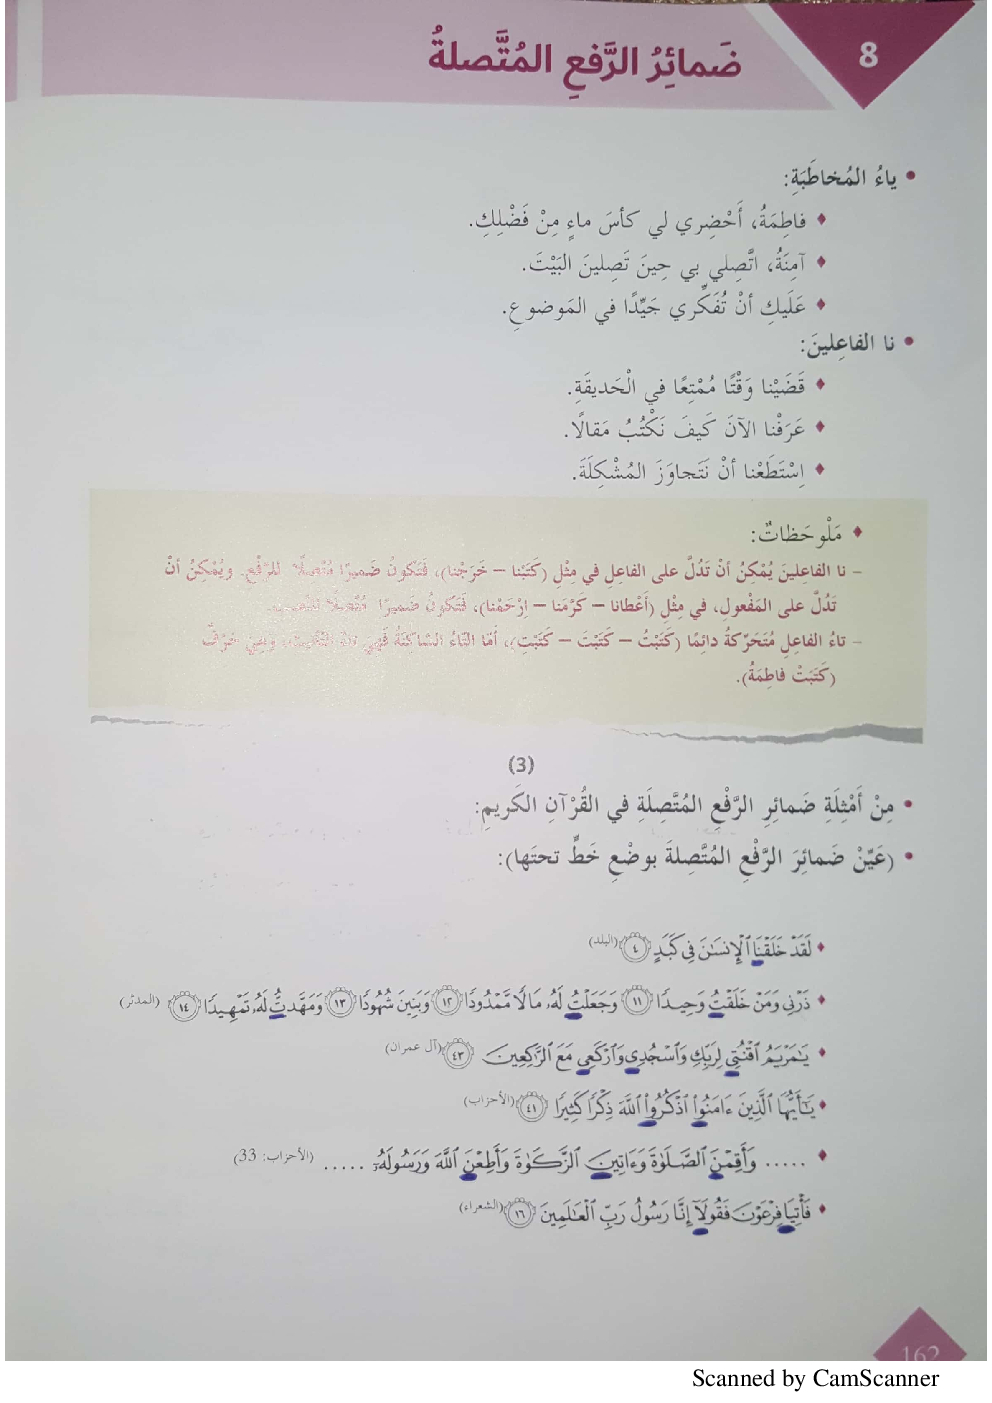 8
ضَمائِرُ الرَّفعِ المُتَّصلةُ
• ياءُ المُخاطَبَةِ:
♦ فاطِمَةُ، أَحْضِري لي كأسَ ماءٍ مِنْ فَضْلِكِ.
♦ آمِنَةُ، اتَّصِلي بي حِينَ تَصِلينَ البَيْتَ.
♦ عَلَيكِ أنْ تُفَكِّري جَيِّدًا في المَوضوعِ.
• نا الفاعِلينَ:
♦ قَضَيْنا وَقْتًا مُمْتِعًا في الْحَديقَةِ.
♦ عَرَفْنا الآنَ كَيفَ نَكْتُبُ مَقالًا.
♦ اِسْتَطَعْنا أنْ نَتَجاوَزَ المُشْكِلَةَ.
♦ مَلْوحَظاتٌ:
– نا الفاعِلينَ يُمْكِنُ أنْ تَدُلَّ على الفاعِلِ في مِثْلِ (كَتَبْنا – خَرَجْنا)، فَتَكونُ ضَميرًا مُتَّصِلًا للرَّفْعِ. ويُمْكِنُ أنْ
تَدُلَّ على المَفْعولِ، في مِثْلِ (أَعْطانا – كَرَّمَنا – اِرْحَمْنا)، فَتَكونُ ضَميرًا مُتَّصِلًا
– تاءُ الفاعِلِ مُتَحَرِّكةٌ دائِمًا (كَتَبْتُ – كَتَبْتَ – كَتَبْتِ)، أمّا التّاءُ السّاكِنَةُ فَهِيَ تاءُ التَّأنيثِ، وهِيَ حَرْفٌ
(كَتَبَتْ فاطِمَةُ).
(3)
• مِنْ أَمْثِلَةِ ضَمائِرِ الرَّفْعِ المُتَّصِلَةِ في القُرْآنِ الكَريمِ:
• (عَيِّنْ ضَمائِرَ الرَّفْعِ المُتَّصِلةَ بوضْعِ خَطٍّ تحتَها):
♦ لَقَدْ خَلَقْنَا ٱلْإِنسَٰنَ فِي كَبَدٍ ٤ (البلد)
♦ ذَرْنِي وَمَنْ خَلَقْتُ وَحِيدًا ١١ وَجَعَلْتُ لَهُۥ مَالًا مَّمْدُودًا ١٢ وَبَنِينَ شُهُودًا ١٣ وَمَهَّدتُّ لَهُۥ تَمْهِيدًا ١٤ (المدثر)
♦ يَٰمَرْيَمُ ٱقْنُتِي لِرَبِّكِ وَٱسْجُدِي وَٱرْكَعِي مَعَ ٱلرَّٰكِعِينَ ٤٣ (آل عمران)
♦ يَٰٓأَيُّهَا ٱلَّذِينَ ءَامَنُوا۟ ٱذْكُرُوا۟ ٱللَّهَ ذِكْرًا كَثِيرًا ٤١ (الأحزاب)
♦ ..... وَأَقِمْنَ ٱلصَّلَوٰةَ وَءَاتِينَ ٱلزَّكَوٰةَ وَأَطِعْنَ ٱللَّهَ وَرَسُولَهُۥ ..... (الأحزاب: 33)
♦ فَأْتِيَا فِرْعَوْنَ فَقُولَآ إِنَّا رَسُولُ رَبِّ ٱلْعَٰلَمِينَ ١٦ (الشعراء)
162
Scanned by CamScanner